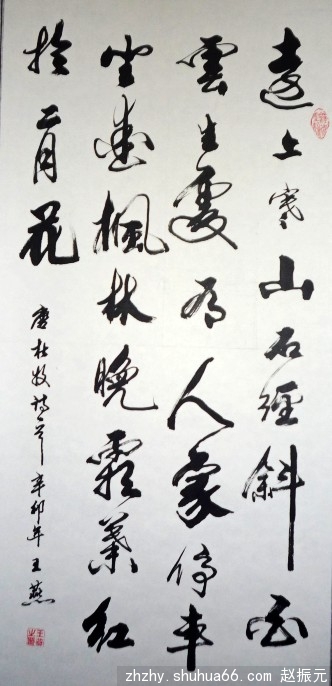 遠上寒山石徑斜白
雲生處有人家停車
坐愛楓林晚霜葉紅
於二月花
唐杜牧詩一首 辛卯年 王燕
zhzhy.shuhua66.com 赵振元